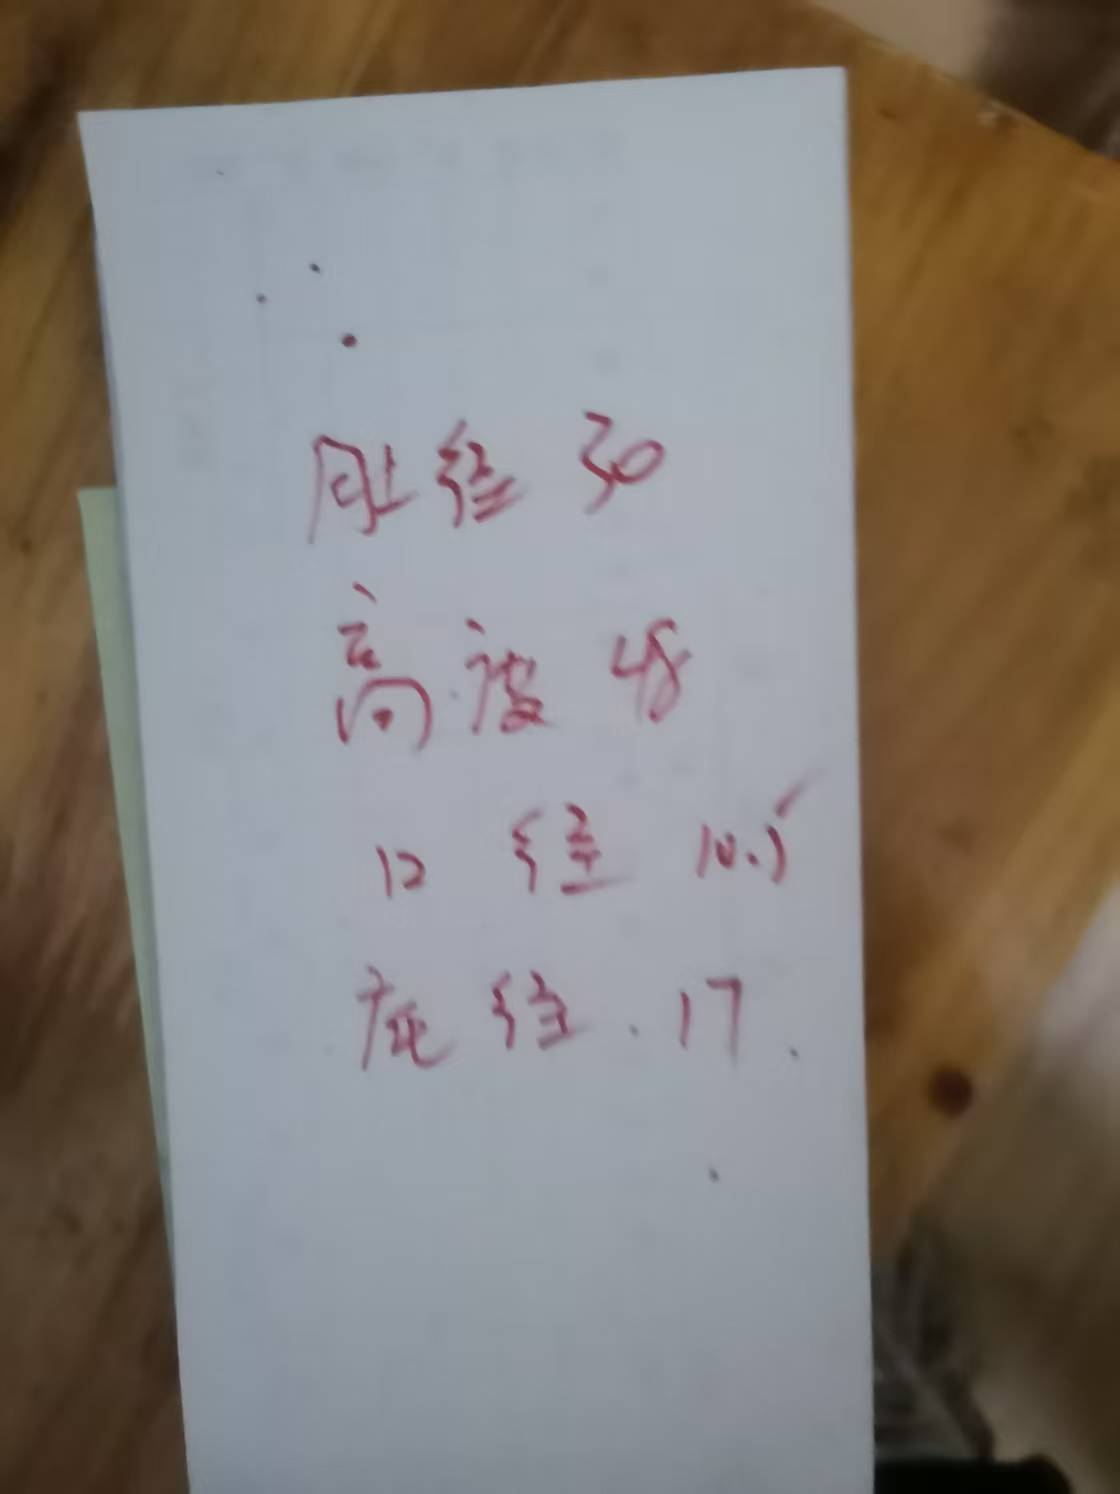 肚径 30
高度 48
口径 10.5
底径 17